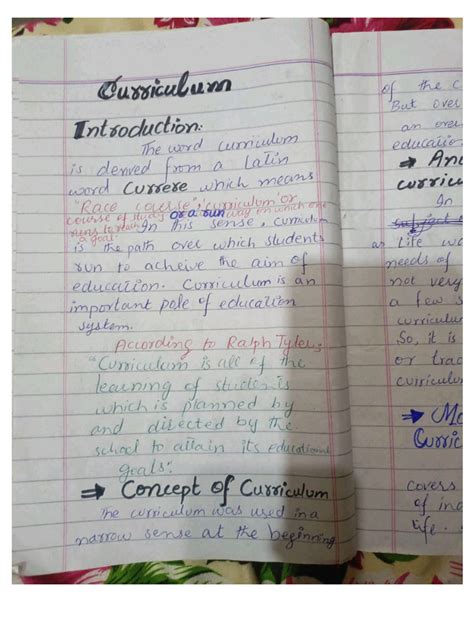 Curriculum
Introduction:
The word curriculum
is derived from a Latin
word Currere which means
"Race course", curriculum or
course of study or a run way on which one
runs to reach a goal.
In this sense, curriculum
is the path over which students
run to acheive the aim of
education. Curriculum is an
important pole of education
system.
According to Ralph Tyler;
"Curriculum is all of the
learning of students
which is planned by
and directed by the
school to attain its educational
goals".
⇒ Concept of Curriculum
The curriculum was used in a
narrow sense at the beginning
of the c
But over
an over
educatio
⇒ And
curricu
In
subject
as Life wa
needs of
not very
a few s
curriculum
So, it is
or trad
curriculum
⇒ Mo
Curric
covers
of ind
life.